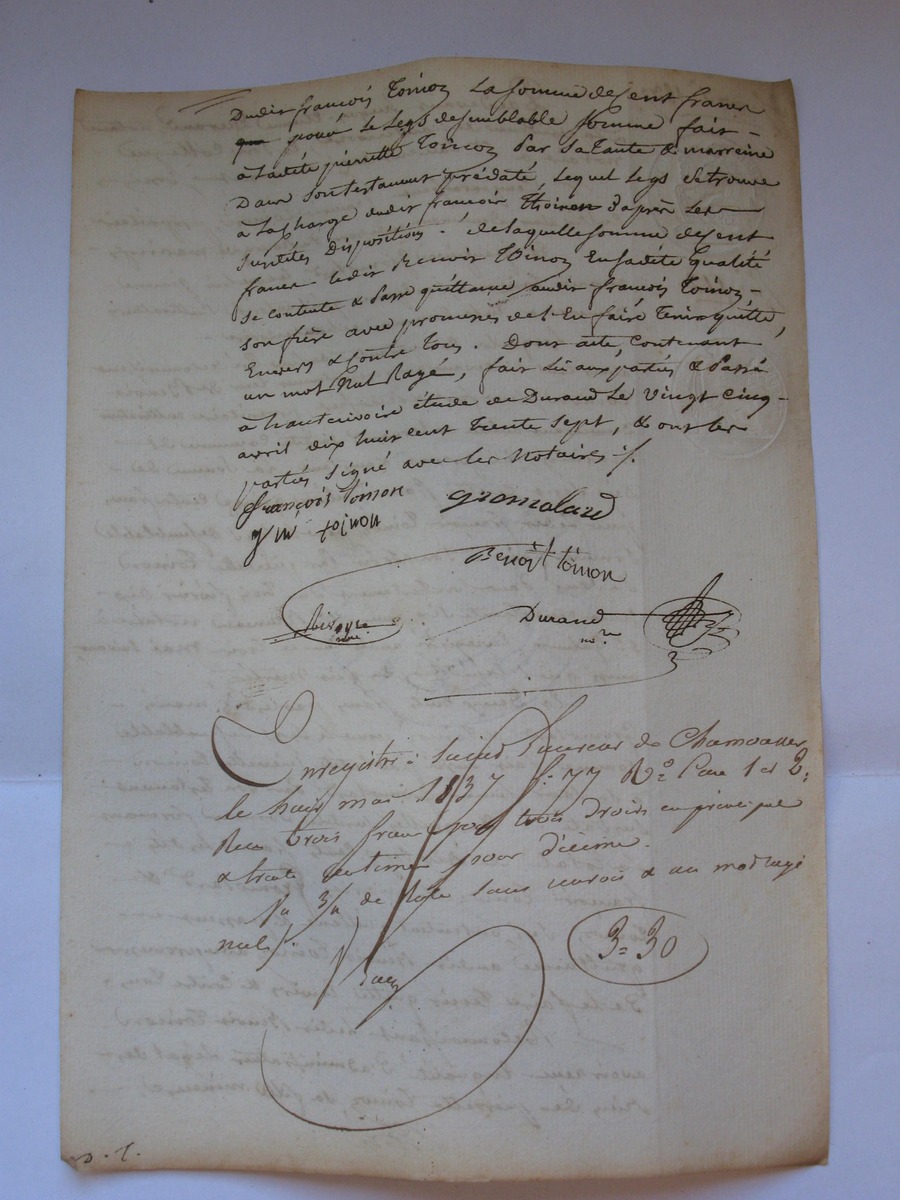 Dudit françois Toinon La somme de Cent francs
que pour le Legs de semblable somme fait -
à Ladite pierrette Toinon Par sa Tante & marreine
Dans son testament prédaté, Lequel Legs se trouve
à La Charge dudit françois Thoinon d'après Les
susdites Dispositions. de laquelle somme de Cent
francs ledit Benoit Toinon En sadite qualité
se contente & Passe quittance audit françois Toinon -
son frère avec promesses de l'En faire Tenir quitte,
Envers & Contre Tous. Dont acte, Contenant
un mot Nul Rayé, fait Lu aux parties & Passé
à hauterivoire étude de Durand Le Vingt Cinq -
avril dix huit cent Trente sept, & ont les
parties signé avec les Notaires ./.
françois Toinon gromolard
toinon
Benoit toinon
Durand
nore
Enregistré à Saint Laurent de Chamousset
le huit mai 1837 f: 77 Ro Case 1 et 2:
Reçu trois francs pour trois Droits en principal
& trente centimes pour décime.
de Rôle sans renvois & un mot rayé
nul ./.
3=30
D. T.